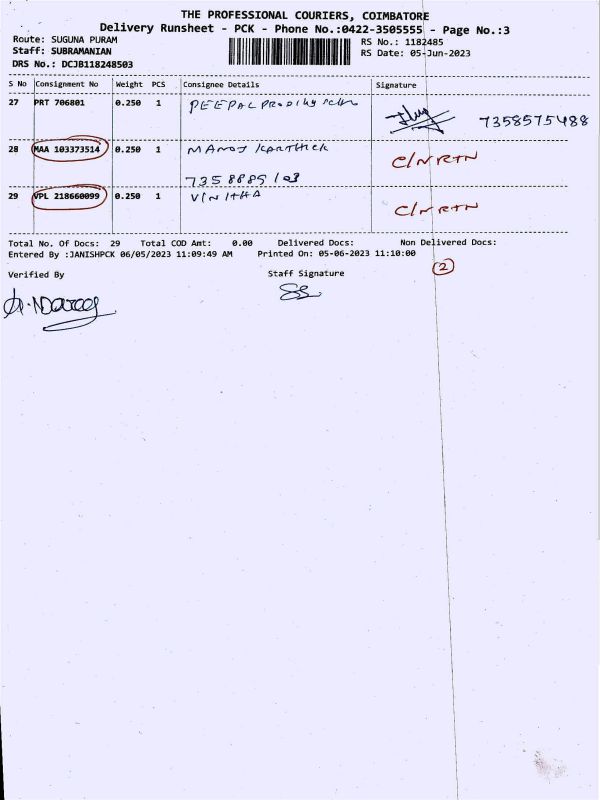 THE PROFESSIONAL COURIERS, COIMBATORE
Delivery Runsheet - PCK - Phone No.:0422-3505555 - Page No.:3
Route: SUGUNA PURAM
RS No.: 1182485
Staff: SUBRAMANIAN
RS Date: 05-Jun-2023
DRS No.: DCJB118248503
S No Consignment No Weight PCS Consignee Details Signature
27 PRT 706801 0.250 1 PEEPAL 7358575488
28 MAA 103373514 0.250 1 MANOJ KARTHICK C/N RTN
7358889103
29 VPL 218660099 0.250 1 VINITHA C/N RTN
Total No. Of Docs: 29 Total COD Amt: 0.00 Delivered Docs: Non Delivered Docs:
Entered By :JANISHPCK 06/05/2023 11:09:49 AM Printed On: 05-06-2023 11:10:00
2
Verified By Staff Signature